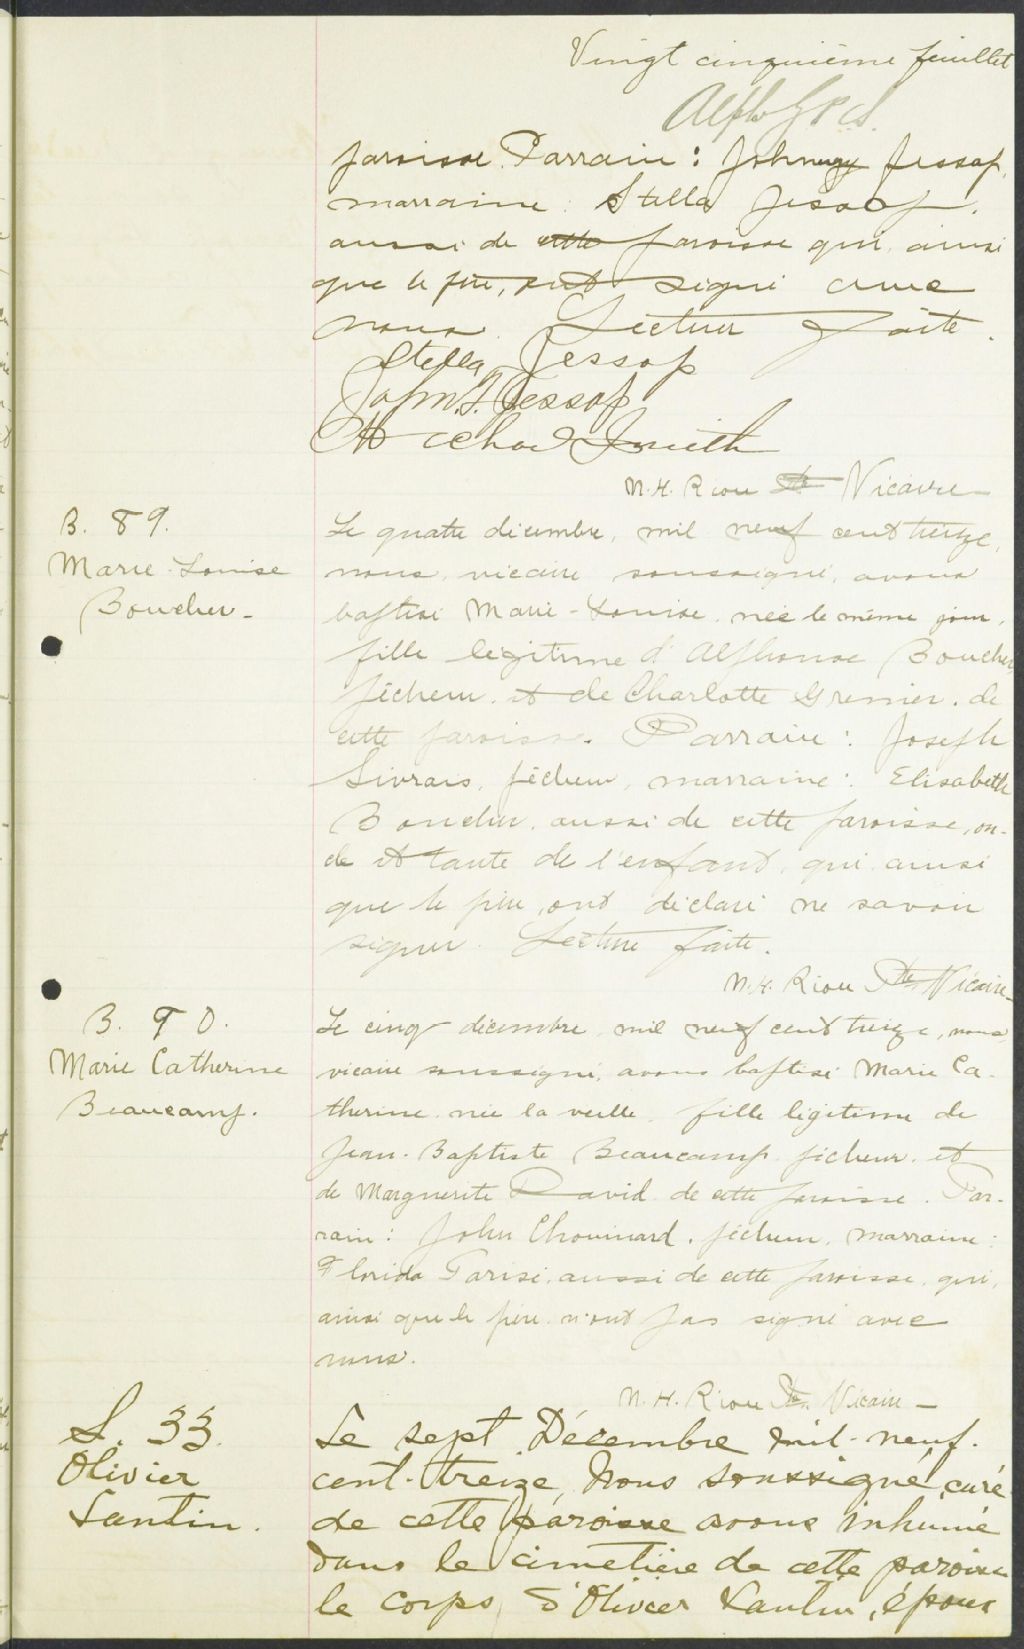 Vingt cinquième feuillet
paroisse. Parrain : Johnny Jessop,
marraine : Stella Jessop,
aussi de cette paroisse qui, ainsi
que le père, ont signé avec
nous. Lecture faite.
Stella Jessop
John J. Jessop
Smith
N. H. Riou Ptre Vicaire
B. 89.
Marie-Louise
Boucher-
Le quatre décembre, mil neuf cent treize,
nous, vicaire soussigné, avons
baptisé Marie-Louise, née le même jour,
fille légitime d'Alphonse Boucher,
pêcheur, et de Charlotte Grenier, de
cette paroisse. Parrain : Joseph
Sivrais, pêcheur, marraine : Elisabeth
Boucher, aussi de cette paroisse, on-
cle et tante de l'enfant, qui ainsi
que le père, ont déclaré ne savoir
signer. Lecture faite.
N. H. Riou Ptre Vicaire-
B. 90.
Marie Catherine
Beaucamp.
Le cinq décembre, mil neuf cent treize, nous,
vicaire soussigné, avons baptisé Marie Ca-
therine, née la veille, fille légitime de
Jean-Baptiste Beaucamp, pêcheur, et
de Marguerite David de cette paroisse. Par-
rain : John Chouinard, pêcheur, marraine :
Florida Parisé, aussi de cette paroisse, qui,
ainsi que le père n'ont pas signé avec
nous.
N. H. Riou Ptre Vicaire-
S. 33.
Olivier
Lantin.
Le sept Décembre mil-neuf-
cent-treize, Nous soussigné, curé
de cette paroisse avons inhumé
dans le cimetière de cette paroisse
le corps d'Olivier Lantin, époux